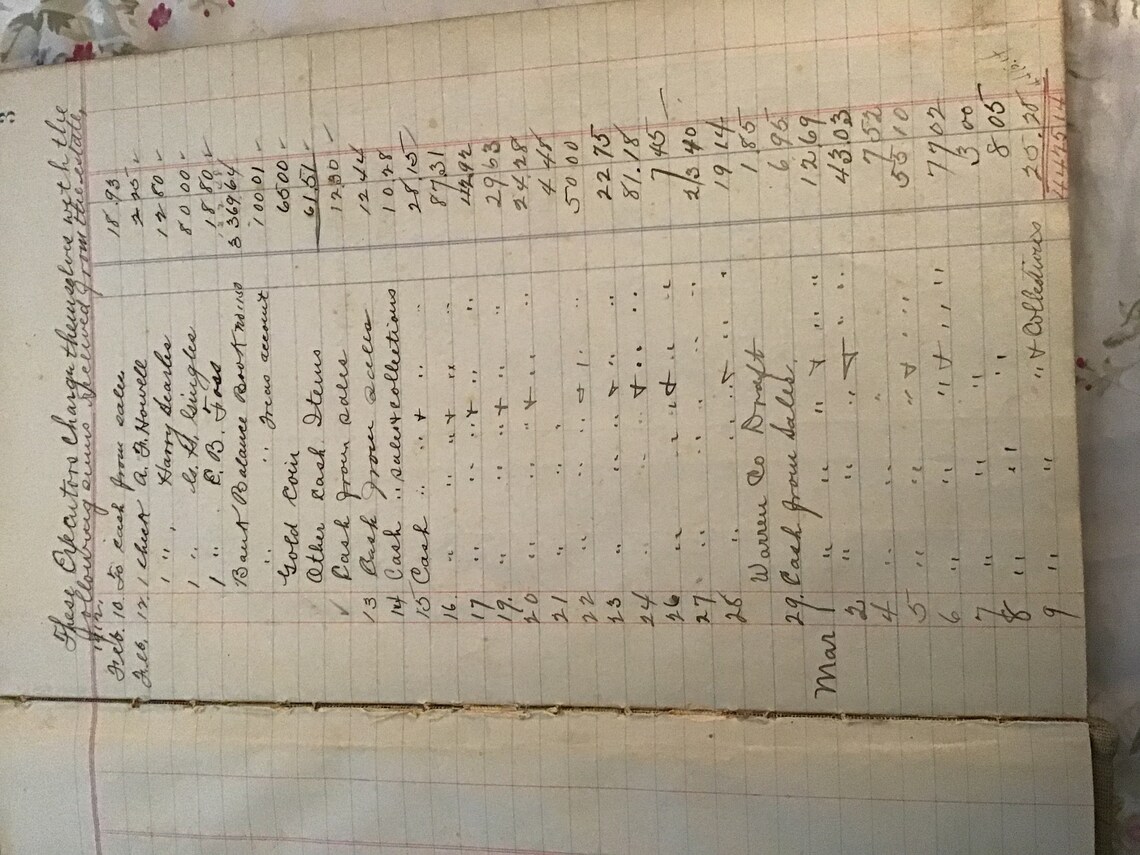 3
These Executors Charge themselves with the
following items received from the estate,
1912.
Feb. 10. To cash from sales 18.93
Feb. 12. " check A. F. Howell 2 25
" " " Harry Searles 12 80
" " " 80 00
" " E. B. Foss 18 80
Bank Balance Book No. 150 3 369,64
" " Treas account 100 01
Gold Coin 65 00
Other Cash Items 61.51
✓ Cash from sales 12 30
13 Cash from sales 12 44
14 Cash " sales & collections 10 28
15 Cash " " & " " 28 15
16. " " " & " " 87,31
17 " " " & " " 42,92
19. " " " & " " 29 63
20 " " " & " " 24,28
21 " " " 4 48
22 " " " & " " 50 00
23 " " " & " " 22 75
24 " " " & " " 81.18
26 " " " & " " 7 45
27 " " " " " 23 40
28 " " " & " " 19 14
Warren Co Draft 1 85
29. Cash from Sales. 6 95
Mar 1 " " " & " " 12 69
2 " " " & " " 43 03
4 " " " 7 52
5 " " " & " " 55 10
6 " " " & " " 77 02
7 " " " 3 00
8 " " " 8 05
9 " " " & Collections 25.25
4425 14